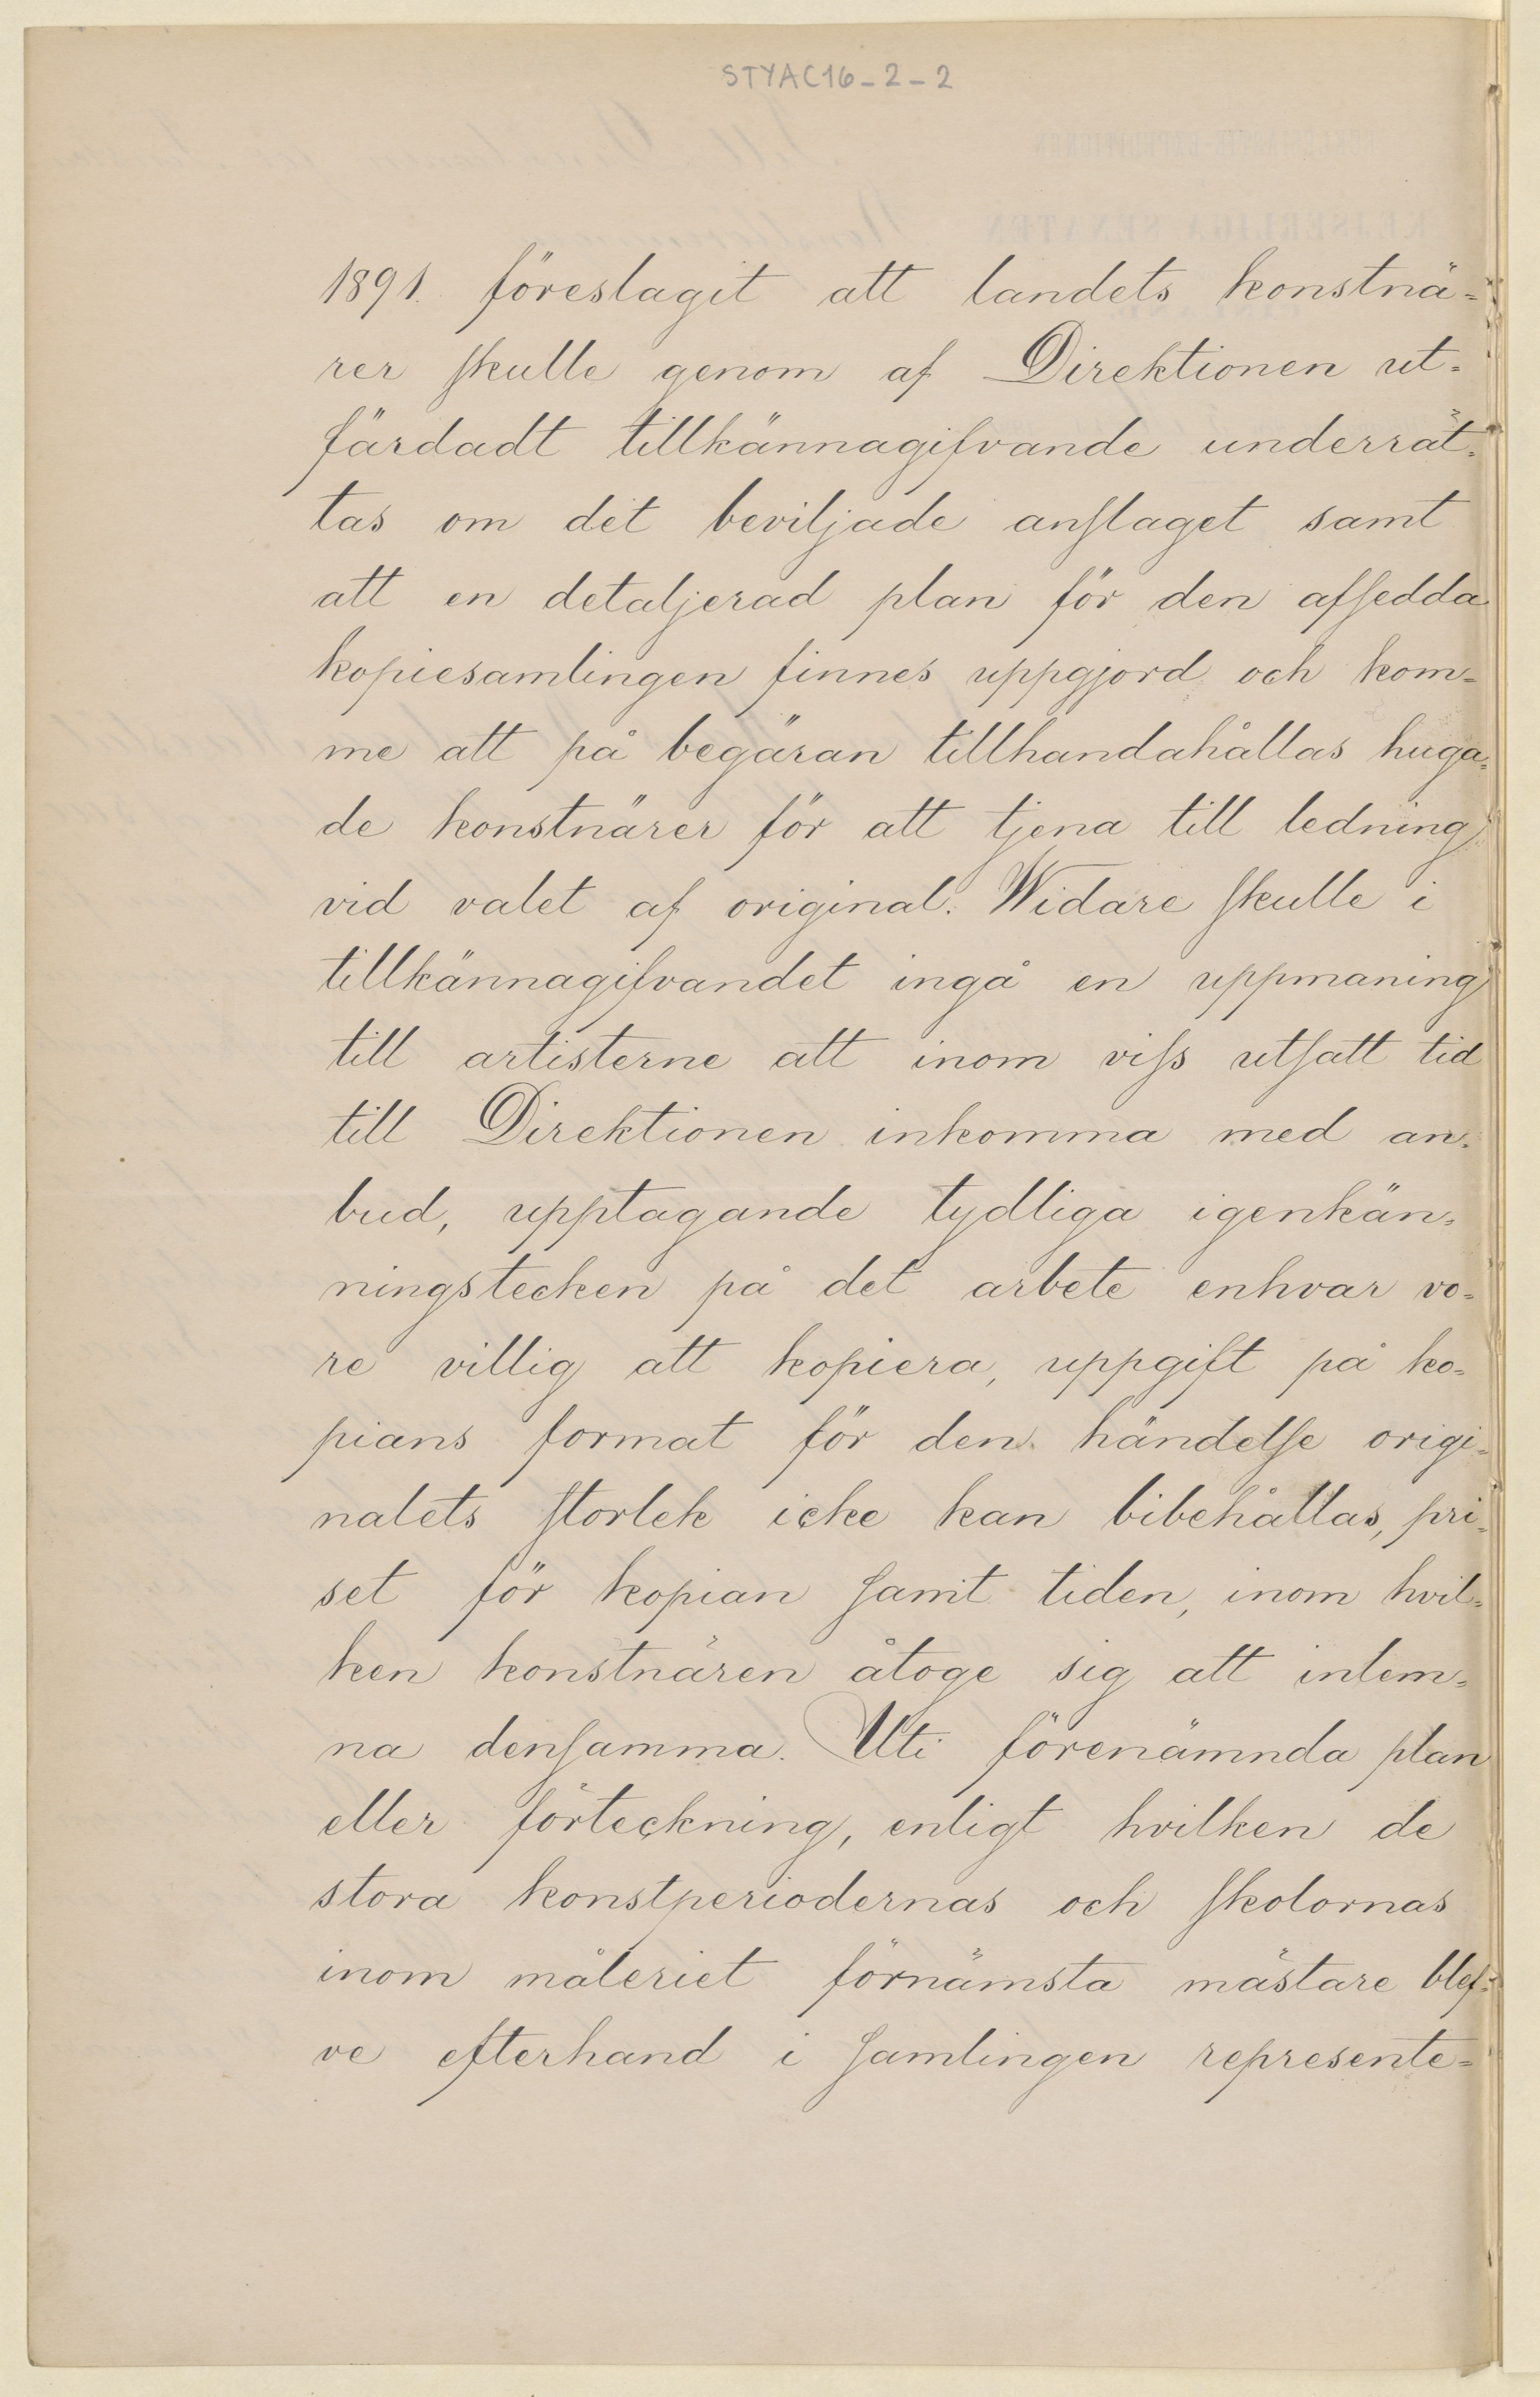 STYAC16-2-2
1891 föreslagit att landets konstnä-
rer skulle genom af Direktionen ut-
färdadt tillkännagifvande underrät-
tas om det beviljade anslaget samt
att en detaljerad plan för den afsedda
kopiesamlingen finnes uppgjord och kom-
me att på begäran tillhandahållas huga-
de konstnärer för att tjena till ledning
vid valet af original. Widare skulle i
tillkännagifvandet ingå en uppmaning
till artisterne att inom viss utsatt tid
till Direktionen inkomma med an-
bud, upptagande tydliga igenkän-
ningstecken på det arbete enhvar vo-
re villig att kopiera, uppgift på ko-
pians format för den händelse origi-
nalets storlek icke kan bibehållas, pri-
set för kopian samt tiden, inom hvil-
ken konstnären åtoge sig att inlem-
na densamma. Uti förenämnda plan
eller förteckning, enligt hvilken de
stora konstperiodernas och skolornas
inom måleriet förnämsta mästare blef-
ve efterhand i samlingen represente-